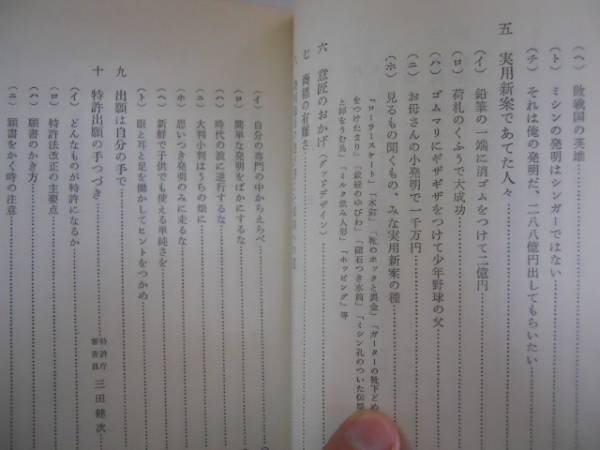 (ヘ) 敗戦国の英雄
(ト) ミシンの発明はシンガーではない
(チ) それは俺の発明だ、二八八億円出してもらいたい
五 実用新案であてた人々
(イ) 鉛筆の一端に消ゴムをつけて二億円
(ロ) 荷札のくふうで大成功
(ハ) ゴムマリにギザギザをつけて少年野球の父
(ニ) お母さんの小発明で一千万円
(ホ) 見るもの聞くもの、みな実用新案の種
『ローラースケート』『木琴』『靴のホックと調金』『ガーターの靴下どめ
をつけたまり』『鉛筆のゆびわ』『磁石つき水筒』『ミシン孔のついた伝票
と卵をうむ鳥』『ミルク飲み人形』『ホッピング』等
六 意匠のおかげ(グッドデザイン)
七 商標の有難さ
(イ) 自分の専門の中からえらべ
(ロ) 簡単な発明をばかにするな
(ハ) 時代の波に逆行するな
(ニ) 大判小判はうらの畑に
(ホ) 思いつき発明のみに走るな
(ヘ) 新鮮で子供でも使える単純さを
(ト) 眼と耳と足を働かしてヒントをつかめ
九 出願は自分の手で
特許庁
審査員 三田健次
十 特許出願の手つづき
(イ) どんなものが特許になるか
(ロ) 特許法改正の主要点
(ハ) 願書のかき方
(ニ) 願書をかく時の注意